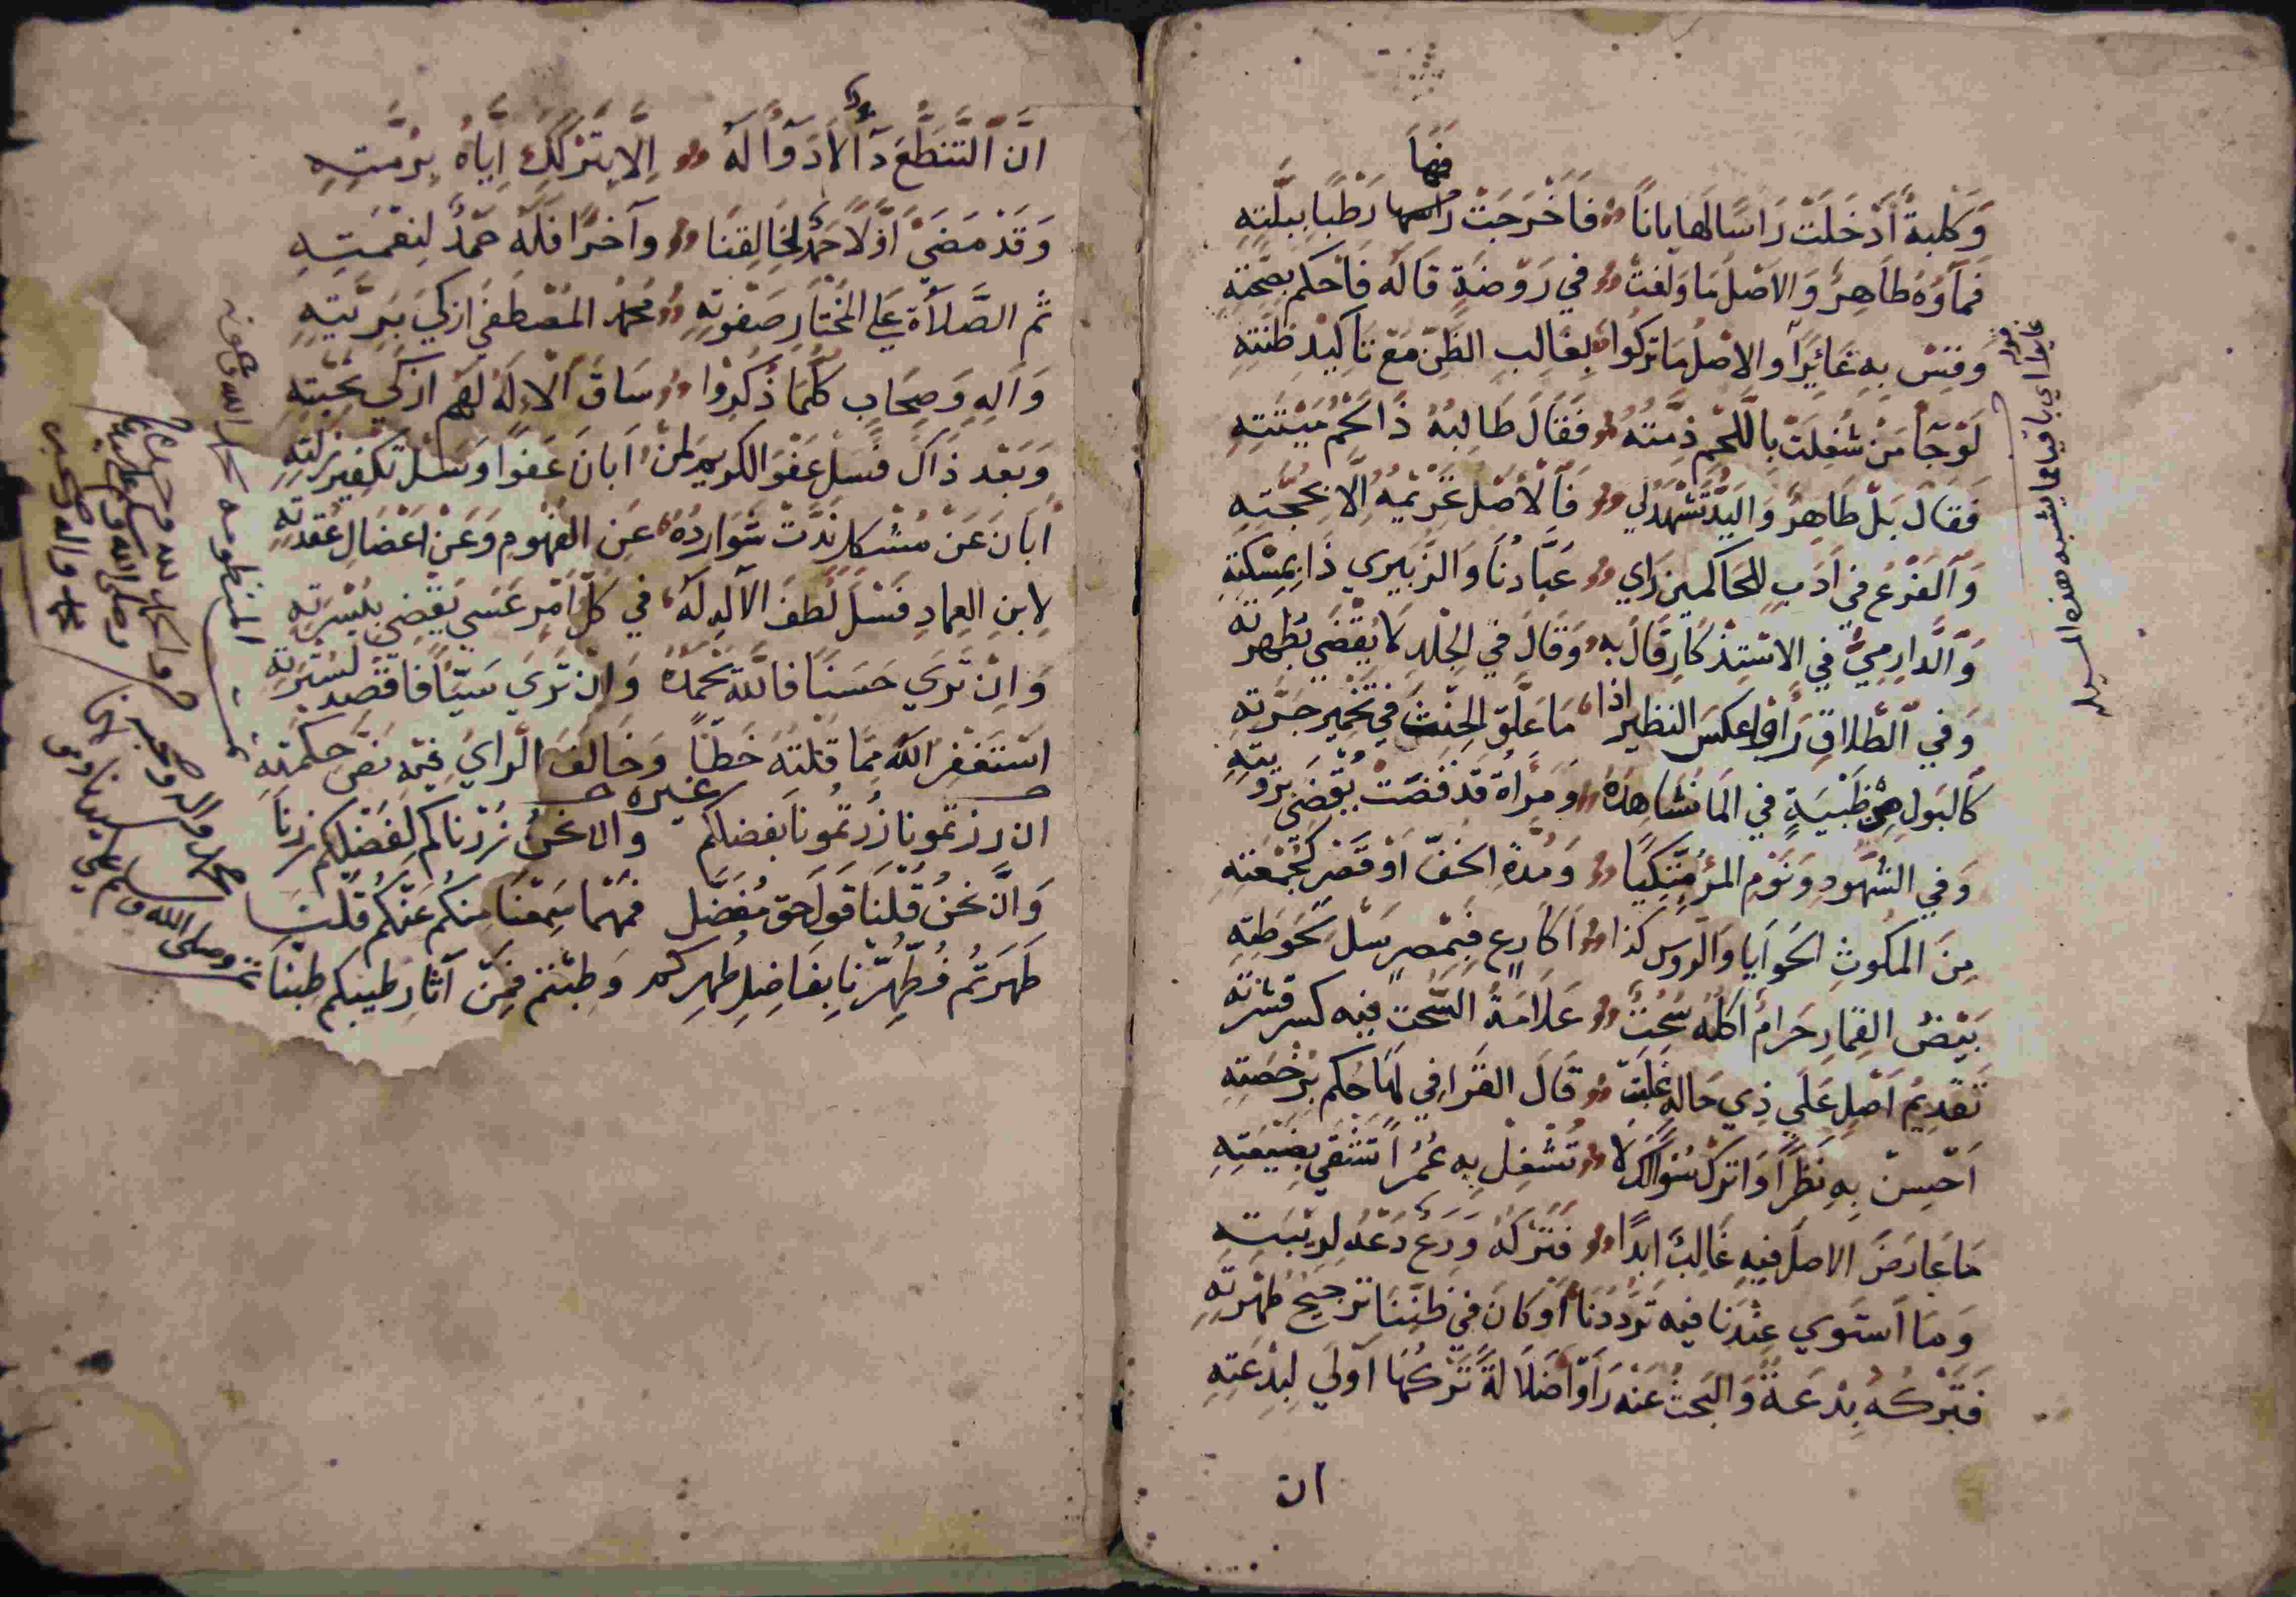 وَكَلبَةٌ أَدْخَلَتْ رَاسًا لَهَا بَانَا فَأَخْرَجَتْ فَمَهَا رَطْبًا بِبَلَّتِهِ
فَمَآؤُهُ طَاهِرٌ وَالاَصْلُ مَا وَلَغَتْ فِي رَوْضَةٍ قَالَهُ فَاحْكُم بِصِحَّتِهِ
وَقِسْ بِهِ غَائِرًا وَالاصْلُ مَا تَرَكُوا بِغَالِبِ الظَّنِّ مَعْ تَاكِيْدِ ظَنَّتِهِ
لَوْ جَآ مَنْ شُغِلَتْ بِاللَّحْمِ ذِمَّتُهُ فَقَالَ طَالِبُهُ ذَا لَحْمُ مَيْتَتِهِ
فَقَالَ بَلْ طَاهِرٌ وَاليَدُ تَشْهَدُ لِي فَالاَصْلُ غَرِيْمُهُ إِلَّا بِحُجَّتِهِ
وَالفَرْعُ فِي أَدَبٍ لِلحَاكِمِينَ رَاي عَبَّادُنَا وَالزُّبَيرِي ذَا بِمِسْكَتِهِ
وَالدَّارِمِيُّ فِي الاسْتِذْكَارِ قَالَ بِهِ وَقَالَ فِي الجِلدِ لَا يُقْضَي بِطُهرَتِهِ
وَفِي الطَّلَاقِ رَأَوْا عكسَ النَّظِيرِ اذا مَا عَلَّقَ الحِنْثَ فِي تَخْمِيرِ جَرَّتِهِ
كَالبَولِ مِنْ ظَبْيَةٍ فِي المَا نُشَاهِدُهُ وَمَرْأَةٌ قَدْ قَضَتْ تُقْضَي بِرُؤْيَتِهِ
وَفِي الشُّهُودِ وَنَوْمِ المَرْءِ مُتَّكِيًا وَمُدَّةِ الخُفِّ أَوْ قَصْرٍ كَجُمْعَتِهِ
مِنَ المُكُوثِ الحَوَايَا وَالرُّوس كذا أَكَارِعٍ فَبِمِصْرٍ سَلْ لِحَوطَتِهِ
بَيْضُ القِمَارِ حَرَامٌ أَكْلُهُ سُحْتٌ عَلَامَةُ السُّحْتِ فِيهِ كَسرُ قِشْرَتِهِ
تَقْدِيْمُ أَصْلٍ عَلَي ذِي حَالَةٍ غَلَبَتْ قَالَ القَرَافِي لَهَا حُكْم بِرُخْصَتِهِ
أَحْسِنْ بِهِ نَظَرًا وَاتْرُكْ سُؤَالَكَ لَا تُشْغِلْ بِهِ عُمُرًا تَشْقَي بِضَيْعَتِهِ
مَا عَارَضَ الاصلَ فِيهِ غَالِبٌ أَبَدًا فَتَرْكُهُ وَرَعٌ دَعْهُ لِرِيْبَتِهِ
وَمَا اسْتَوَي عِنْدَنَا فِيهِ تَرَدُّدُنَا أَوْ كَانَ فِي ظَنِّنَا تَرْجِيْحُ طُهْرَتِهِ
فَتَرْكُهُ بِدْعَةٌ وَالبَحثُ عَنْهُ رَأَوْا ضَلَالَةً تَرْكُهَا أَولَي لِبِدْعَتِهِ
ان
انَّ التَّنَطُّعَ دَآءٌ لَا دَوَآ لَهُ إِلَّا بِتَرْكِكَ إِيَّاهُ بِرُمَّتِهِ
وَقَدْ مَضَيْ أَوَّلًا حَمْدٌ لِخَالِقِنَا وَآخِرًا فَلَهُ حَمْدٌ لِنِعْمَتِهِ
ثُم الصَّلَاةُ عَلَي المُخْتَارِ صَفْوَتِهِ مُحَمَّد المُصْطَفَي أَزْكَي بَرِيَّتِهِ
وَآلِهِ وَصِحَابٍ كُلَّمَا ذُكِرُوا سَاقَ الالَهُ لَهُم أَزْكَي تَحِيَّتِهِ
وَبَعْد ذَاكَ فَسَلْ عَفْوَ الكَرِيمِ لِمَنْ أَبَانَ عَفْوًا وَسَلْ تكفِير زلَّتِهِ
أَبَانَ عَنْ مُشْكِلٍ نَدَّتْ شَوَارِدُهُ عَنِ الفُهُومِ وَعَنْ اعْضَالِ عُقْدَتِهِ
لِابنِ العِمَادِ فَسَلْ لُطْفَ الالَهِ لَهُ فِي كُلِّ أَمْرٍ عَسَي يَقْضِي بِيُسْرَتِهِ
وَانْ تَرَي حَسَنًا فَاللَّهَ نَحْمَدُهُ وَإنْ تَرَي سَيِّئًا فَاقْصِد لِسُتْرَتِهِ
اسْتَغْفِرُ اللهَ مِمَّا قُلْتُهُ خَطَأً وَخَالَفَ الرَّايُ فِيْهِ نَصَّ حكمَتِهِ
غيره
ان زرتمونا زُرتُمُونا بفَضلِكُم وان نحنُ زُرْنَاكُم لِفَضْلِكُم زُرْنَا
وَإِنْ نَحْنُ قُلْنَا قَولَ حَقٍّ مُفَضَّلٍ فَمَهْمَا سَمِعْنَا مِنكُم عَنْكُم قُلنَا
طَهَرتُم فَطُهِّرْنَا بِفَاضِلِ طُهرِكم وَطِبْتُم فَمِنْ آثَارِ طِيبِكم طِبْنَا